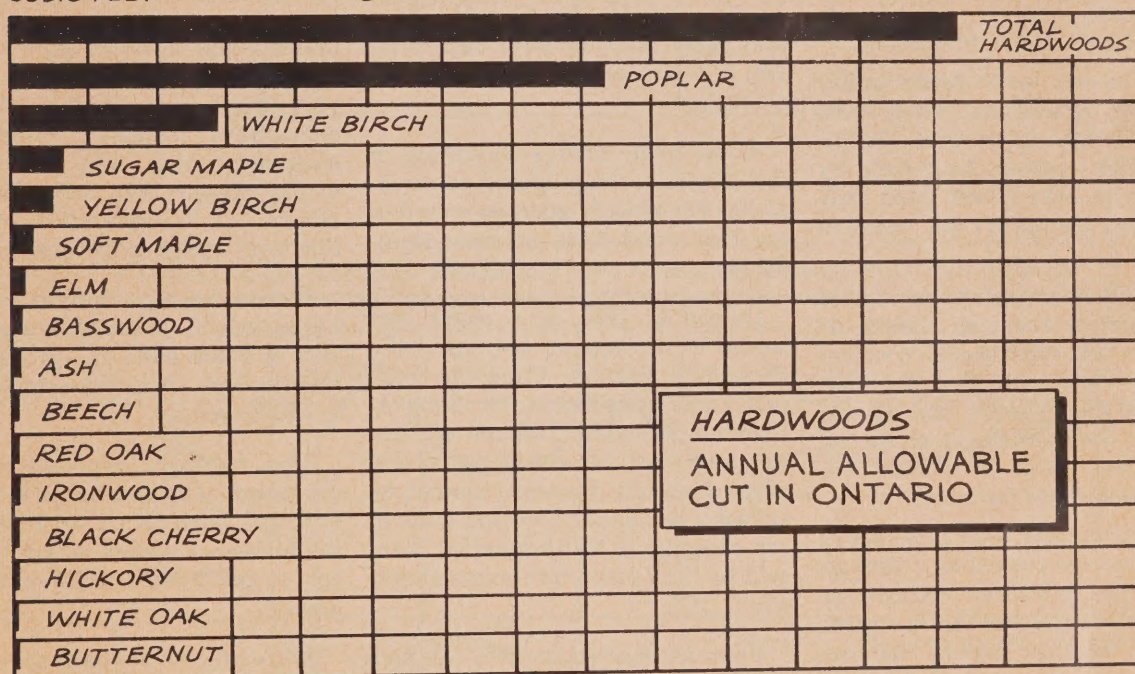 TOTAL
HARDWOODS
POPLAR
WHITE BIRCH
SUGAR MAPLE
YELLOW BIRCH
SOFT MAPLE
ELM
BASSWOOD
ASH
BEECH
RED OAK
IRONWOOD
BLACK CHERRY
HICKORY
WHITE OAK
BUTTERNUT
HARDWOODS
ANNUAL ALLOWABLE
CUT IN ONTARIO